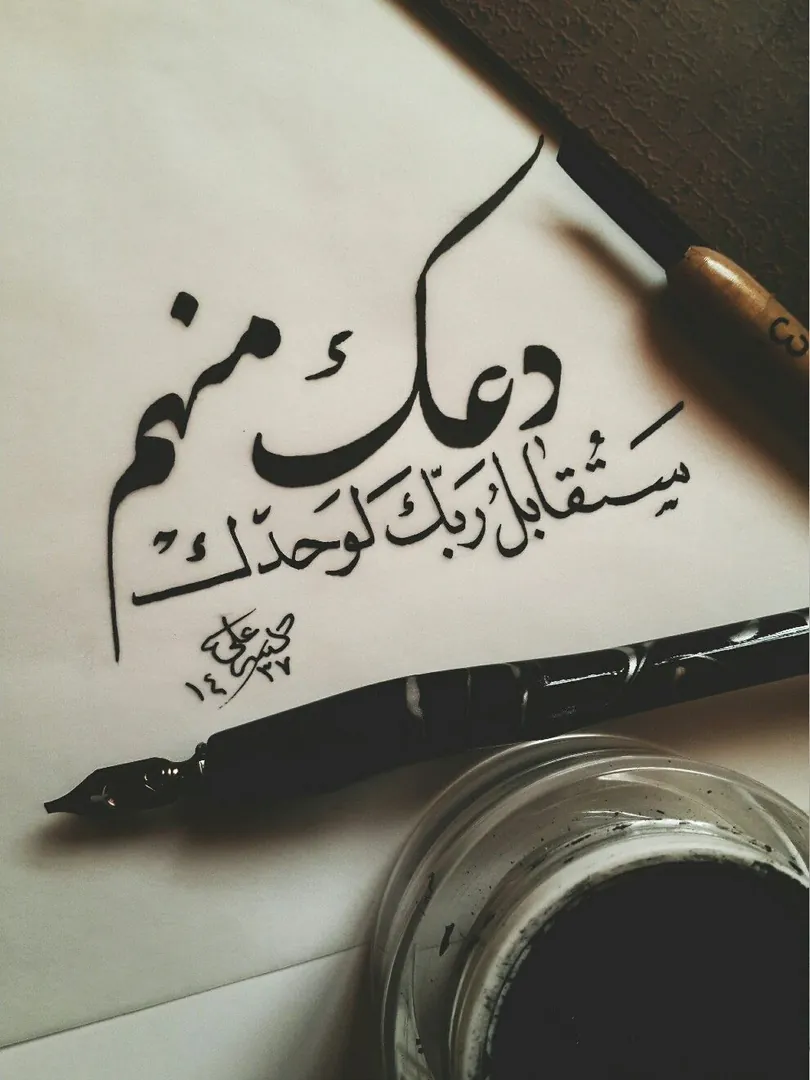 دعك منهم
سَتُقابلُ رَبّكَ لَوحَدّك
علي
١٤٣٧
3